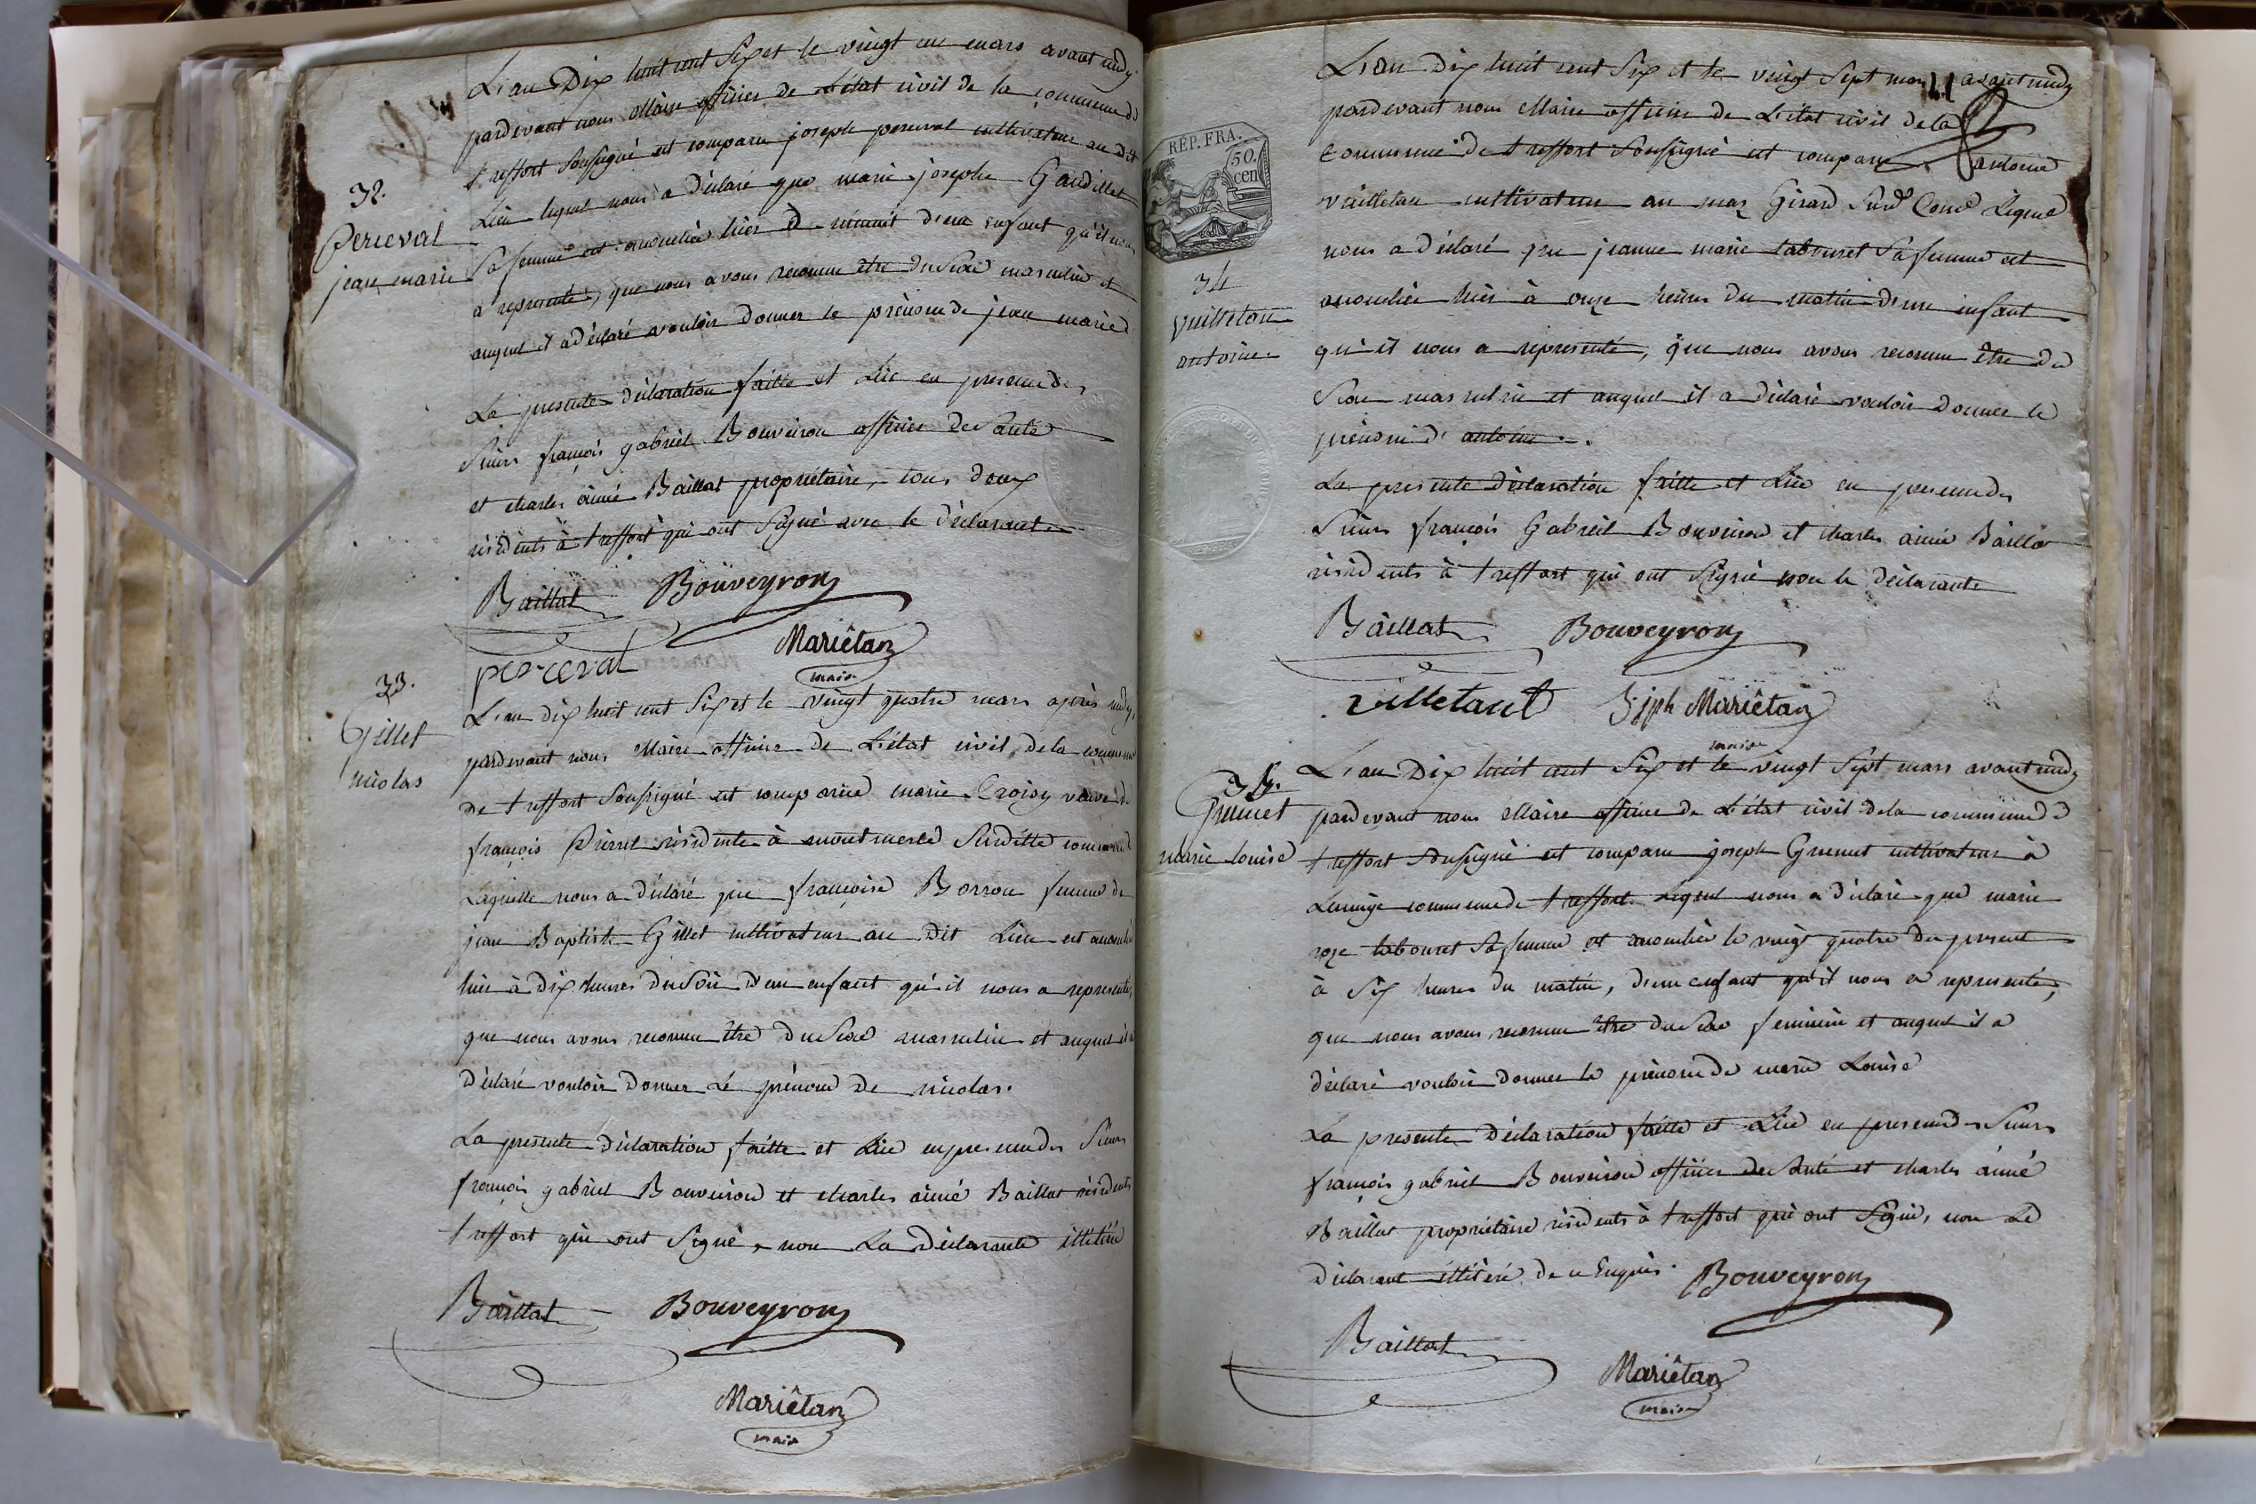 L'an Dix huit cent Six et le vingt un mars avant midy
pardevant nous Maire officier de L'état civil de la commune de
treffort Soussigné est comparu joseph perceval cultivateur au dit
Lieu lequel nous a déclaré que marie josephe Gaudillet
Sa femme est accouchée hier à minuit d'un enfant qu'il nous
a representé, que nous avons reconnu être du Sexe masculin et
auquel il a déclaré vouloir donner le prénom de jean marie
La presente déclaration faitte et Lue en presence des
Sieurs françois gabriel Bouveiron officier de Santé
et charles aimé Baillat propriétaire, tous deux
résidents à treffort qui ont Signé avec le déclarant
32.
Perceval
jean marie
Baillat Bouveyron
Mariêtan
maire
perceval
33.
Gillet
nicolas
L'an dix huit cent Six et le vingt quatre mars après midy,
pardevant nous Maire officier de L'état civil de la commune
de treffort Soussigné est comparue marie Croisy veuve de
françois Pierret résidente à montmerle Susditte commune
Laquelle nous a déclaré que françoise Borron femme de
jean Baptiste Gillet cultivateur au dit Lieu est accouchée
hier à dix heures du Soir d'un enfant qu'il nous a representé,
que nous avons reconnu être du Sexe masculin et auquel il a
déclaré vouloir donner Le prénom de nicolas.
La presente déclaration faitte et Lue en presence des Sieurs
françois gabriel Bouveiron et charles aimé Baillat résidents
treffort qui ont Signé, non La déclarante illitérée
Baillat Bouveyron
Mariêtan
maire
L'an Dix huit cent Six et le vingt Sept mars avant midy
pardevant nous Maire officier de L'état civil de la
commune de treffort Soussigné est comparu antoine
vuilletau cultivateur au mas Girard Susd. Comne Lequel
nous a déclaré que jeanne marie tabouret Sa femme est
accouchée hier à onze heures du matin d'un enfant
qu'il nous a representé, que nous avons reconnu être du
Sexe masculin et auquel il a déclaré vouloir donner le
prénom d'antoine.
La presente déclaration faitte et Lue en presence des
Sieurs françois Gabriel Bouveiron et charles aimé Baillat
résidents à treffort qui ont Signé avec le déclarant
RÉP. FRA.
50.
cen
34
Vuilletau
antoine
Baillat Bouveyron
villetaut Jph Mariêtan
maire
35.
Grumet
marie louise
L'an Dix huit cent Six et le vingt Sept mars avant midy
pardevant nous Maire officier de L'état civil de la commune de
treffort Soussigné est comparu joseph Grumet cultivateur à
commune de treffort Lequel nous a déclaré que marie
roze tabouret Sa femme est accouchée le vingt quatre du present
à Six heures du matin, d'un enfant qu'il nous a representé,
que nous avons reconnu être du Sexe feminin et auquel il a
déclaré vouloir donner le prénom de marie Louise
La presente déclaration faitte et Lue en presence des Sieurs
françois gabriel Bouveiron officier de Santé et charles aimé
Baillat propriétaire résidents à treffort qui ont Signé, non Le
déclarant illitéré de ce Enquis.
Bouveyron
Baillat
Mariêtan
maire